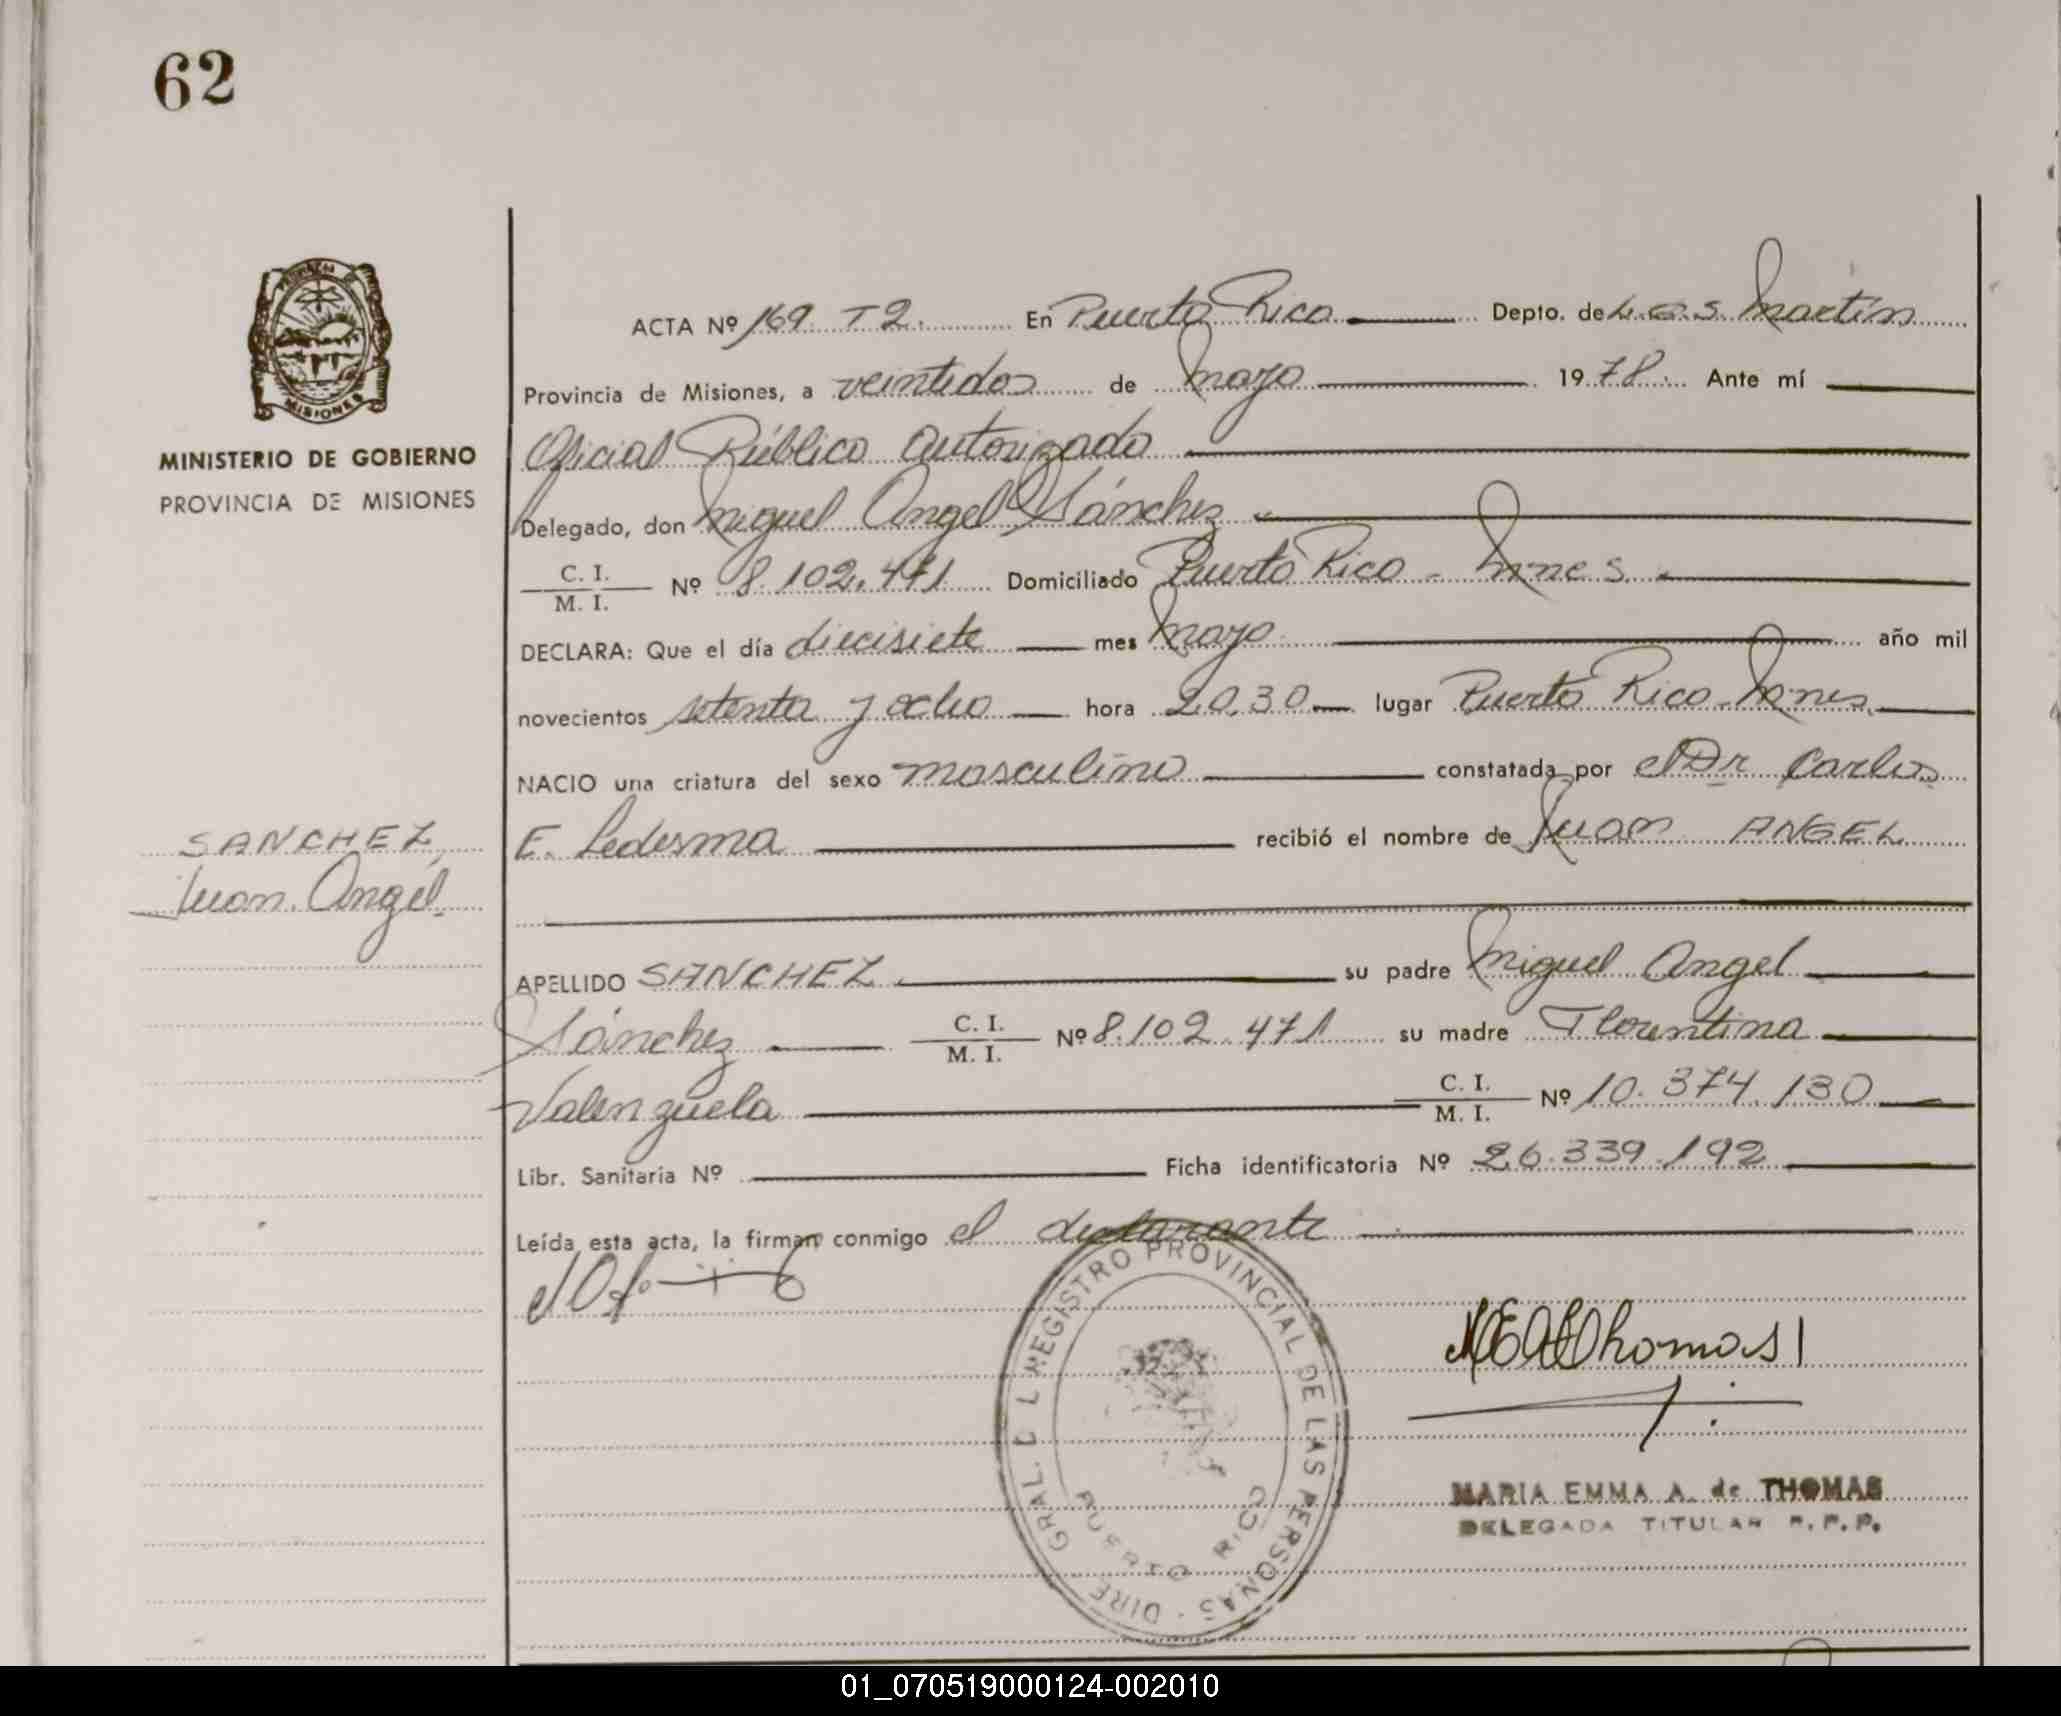 62
PROVINCIA DE
MISIONES
MINISTERIO DE GOBIERNO
PROVINCIA DE MISIONES
SANCHEZ,
Juan Angel
ACTA Nº 169 T2. En Puerto Rico Depto. de L.G.S. Martín
Provincia de Misiones, a veintidos de mayo 1978. Ante mí
Oficial Público autorizado
Delegado, don Miguel Angel Sánchez
C. I.
M. I. Nº 8.102.471 Domiciliado Puerto Rico - Mnes.
DECLARA: Que el día diecisiete mes mayo año mil
novecientos setenta y ocho hora 20,30 lugar Puerto Rico - Mnes.
NACIO una criatura del sexo masculino constatada por el Dr Carlos
E. Ledesma recibió el nombre de Juan ANGEL
APELLIDO SANCHEZ su padre Miguel Angel
Sánchez C. I.
M. I. Nº 8.102.471 su madre Florentina
Valenzuela C. I.
M. I. Nº 10.374.130
Libr. Sanitaria Nº Ficha identificatoria Nº 26.339.192
Leída esta acta, la firman conmigo el declarante
REGISTRO PROVINCIAL DE LAS PERSONAS · DIRE GRAL. D L
PUERTO RICO
MEAThomas
MARIA EMMA A. de THOMAS
DELEGADA TITULAR R. P. P.
01_070519000124-002010